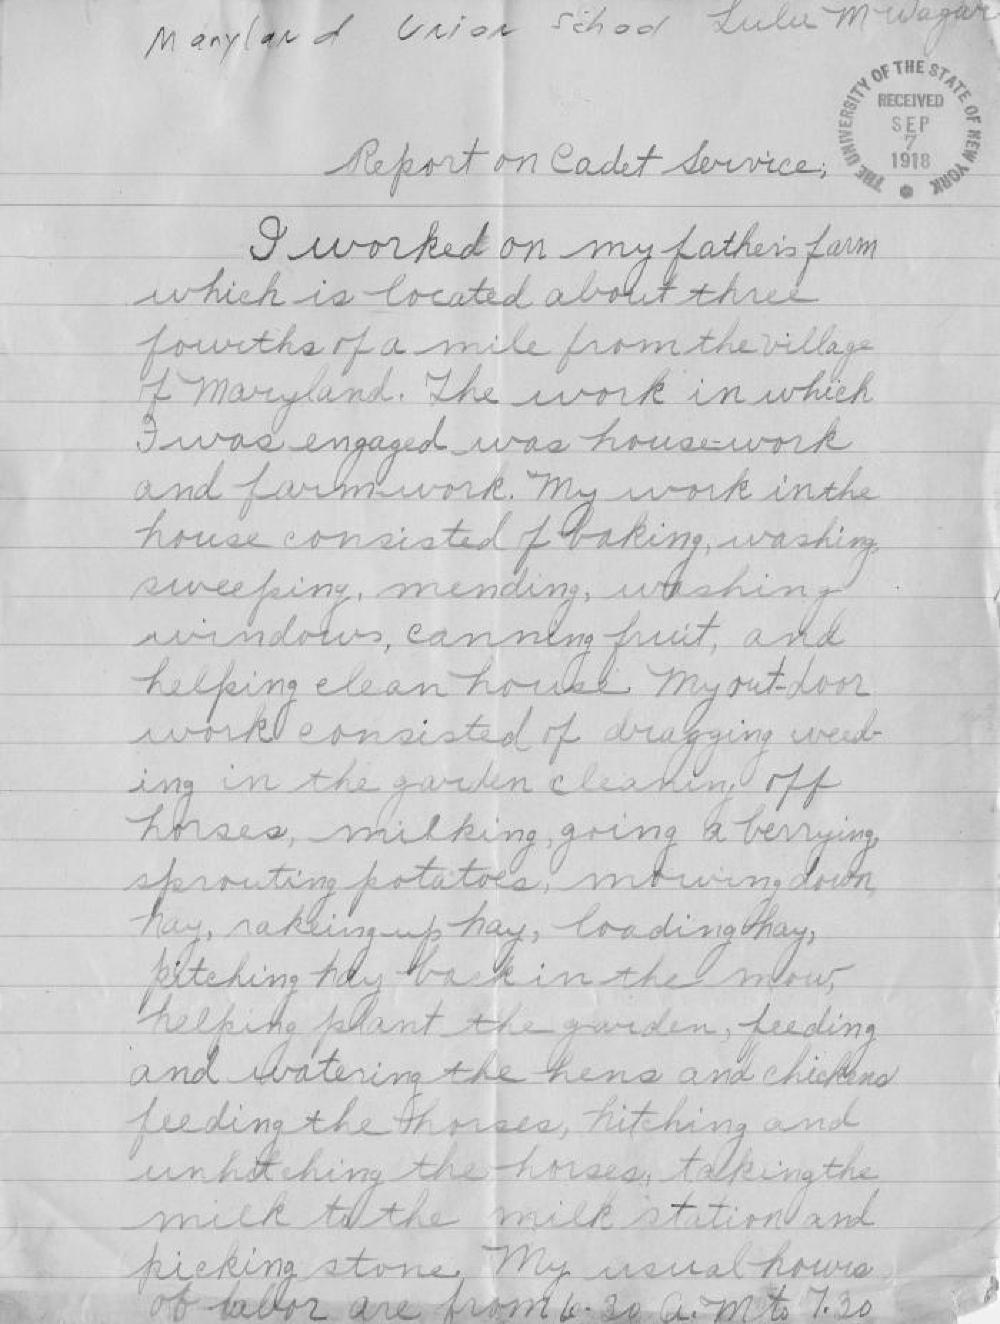 Maryland Union School Lulu M Wagar
THE UNIVERSITY OF THE STATE OF NEW YORK
RECEIVED
SEP
7
1918
Report on Cadet Service;
I worked on my father's farm
which is located about three
fourths of a mile from the village
of Maryland. The work in which
I was engaged was house-work
and farm-work. My work in the
house consisted of baking, washing,
sweeping, mending, washing
windows, canning fruit, and
helping clean house. My out-door
work consisted of dragging weed-
ing in the garden cleaning off
horses, milking, going a berrying,
sprouting potatoes, mowing down
hay, rakeing up hay, loading hay,
pitching hay back in the mow,
helping plant the garden, feeding
and watering the hens and chickens
feeding the horses, hitching and
unhitching the horses, taking the
milk to the milk station and
picking stone. My usual hours
of labor are from 6.30 A.M to 7.30